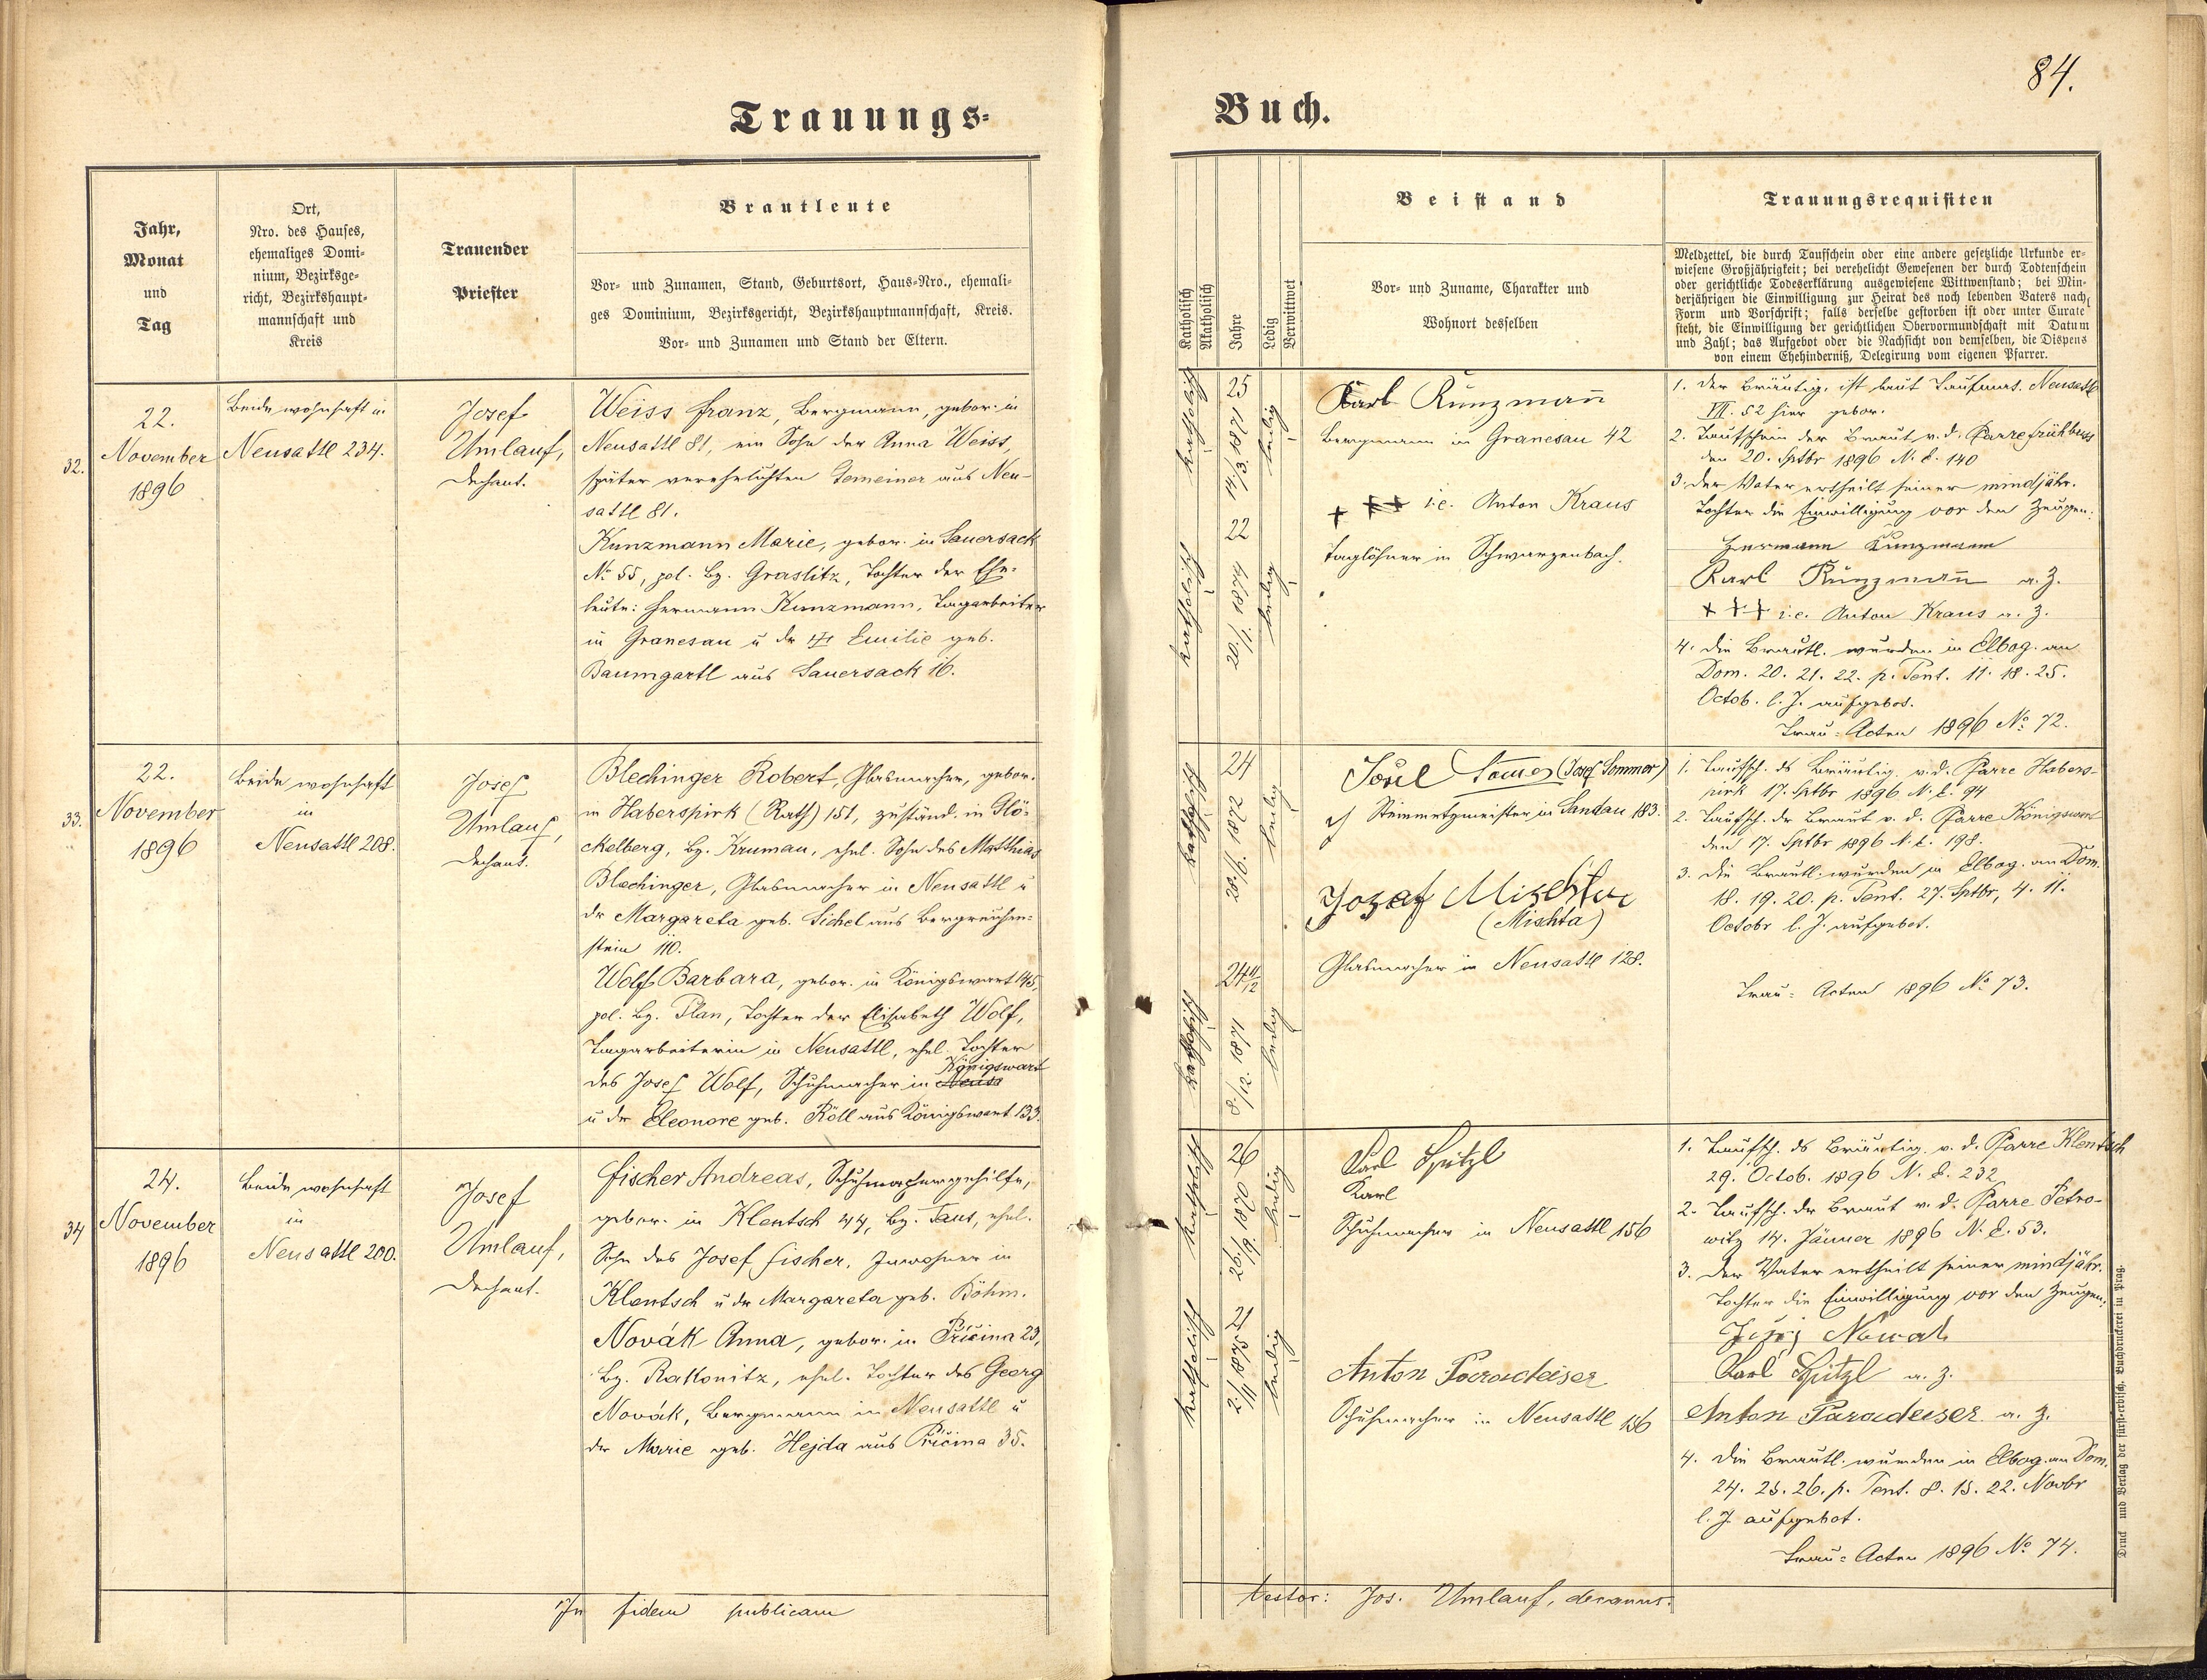 84.
Trauungs-
Buch.
Jahr,
Monat
und
Tag
Ort,
Nro. des Hauses,
ehemaliges Domi-
nium, Bezirksge-
richt, Bezirkshaupt-
mannschaft und
Kreis
Trauender
Priester
Brautleute
Vor- und Zunamen, Stand, Geburtsort, Haus-Nro., ehemali-
ges Dominium, Bezirksgericht, Bezirkshauptmannschaft, Kreis.
Vor- und Zunamen und Stand der Eltern.
Katholisch
Akatholisch
Jahre
Ledig
Verwittwet
Beistand
Vor- und Zuname, Charakter und
Wohnort desselben
Trauungsrequisiten
Meldzettel, die durch Taufschein oder eine andere gesetzliche Urkunde er-
wiesene Großjährigkeit; bei verehelicht Gewesenen der durch Todtenschein
oder gerichtliche Todeserklärung ausgewiesene Wittwenstand; bei Min-
derjährigen die Einwilligung zur Heirat des noch lebenden Vaters nach
Form und Vorschrift; falls derselbe gestorben ist oder unter Curate
steht, die Einwilligung der gerichtlichen Obervormundschaft mit Datum
und Zahl; das Aufgebot oder die Nachsicht von demselben, die Dispens
von einem Ehehinderniß, Delegirung vom eigenen Pfarrer.
32.
22.
November
1896
Beide wohnhaft in
Neusattl 234.
Josef
Umlauf,
Dechant.
Weiss Franz, Bergmann, gebor. in
Neusattl 81, ein Sohn der Anna Weiss,
später verehelichten Gemeiner aus Neu-
sattl 81.
Kunzmann Marie, gebor. in Sauersack
No 55, pol. Bz. Graslitz, Tochter der Ehe-
leute: Hermann Kunzmann, Tagarbeiter
in Granesau u der Emilie geb.
Baumgartl aus Sauersack 16.
katholisch
25
14/3. 1871
ledig
katholisch
22
20/1. 1874
ledig
Karl Kunzmann
Bergmann in Granesau 42
+++ i.e. Anton Kraus
Taglöhner in Schwarzenbach.
1. Der Bräutig. ist laut Taufmat. Neusattl
VII. 52 hier gebor.
2. Taufschein der Braut v. d. Pfarre Frühbuss
den 20. Sptbr 1896 N. E. 140
3. Der Vater ertheilt seiner mindjähr.
Tochter die Einwilligung vor den Zeugen:
Hermann Kunzmann
Karl Kunzmann a. Z.
+++ i.e. Anton Kraus a. Z.
4. Die Brautl. wurden in Elbog. an
Dom. 20. 21. 22. p. Pent. 11. 18. 25.
Octob. l. J. aufgebot.
Trau-Acten 1896 No 72.
33.
22.
November
1896
Beide wohnhaft
in
Neusattl 208.
Josef
Umlauf,
Dechant.
Blechinger Robert, Glasmacher, gebor.
in Haberspirk (Rath) 151, zuständ. in Glö-
ckelberg, Bz. Krumau, ehel. Sohn des Matthias
Blechinger, Glasmacher in Neusattl u
der Margareta geb. Sichel aus Bergreichen-
stein 110.
Wolf Barbara, gebor. in Königswart 145,
pol. Bz. Plan, Tochter der Elisabeth Wolf,
Tagarbeiterin in Neusattl, ehel. Tochter
des Josef Wolf, Schuhmacher in Neusa Königswart
u der Eleonore geb. Röll aus Königswart 133.
katholisch
24
28/6. 1872
ledig
katholisch
24 11/12
8/12. 1871
ledig
(Josef Sommer)
Steinmetzmeister in Sandau 183.
Jozef Mischta
(Mischta)
Glasmacher in Neusattl 128.
1. Taufsch. ds Bräutig. v. d. Pfarre Habers-
pirk 17. Sptbr 1896 N. E. 94
2. Taufsch. der Braut v. d. Pfarre Königswart
den 17. Sptbr 1896 N. E. 198.
3. Die Brautl. wurden in Elbog. an Dom.
18. 19. 20. p. Pent. 27. Sptbr, 4. 11.
Octobr l. J. aufgebot.
Trau-Acten 1896 No 73.
34
24.
November
1896
Beide wohnhaft
in
Neusattl 200.
Josef
Umlauf,
Dechant.
Fischer Andreas, Schuhmachergehilfe,
gebor. in Klentsch 44, Bz. Taus, ehel.
Sohn des Josef Fischer, Inwohner in
Klentsch u der Margareta geb. Böhm.
Novák Anna, gebor. in Příčina 23,
Bz. Rakonitz, ehel. Tochter des Georg
Novák, Bergmann in Neusattl u
der Marie geb. Hejda aus Příčina 35.
katholisch
26
26/9. 1870
ledig
katholisch
21
21/11 1875
ledig
Karl Spitzl
Karl
Schuhmacher in Neusattl 156
Anton Paradeiser
Schuhmacher in Neusattl 156
1. Taufsch. ds Bräutig. v. d. Pfarre Klentsch
29. Octob. 1896 N. E. 232
2. Taufsch. der Braut v. d. Pfarre Petro-
witz 14. Jänner 1896 N. E. 53.
3. Der Vater ertheilt seiner mindjähr.
Tochter die Einwilligung vor den Zeugen:
Nowak
Karl Spitzl a. Z.
Anton Paradeiser a. Z.
4. Die Brautl. wurden in Elbog. an Dom.
24. 25. 26. p. Pent. 8. 15. 22. Novbr
l. J. aufgebot.
Trau-Acten 1896 No 74.
In fidem publicam
testor: Jos. Umlauf, decanus.
Druck und Verlag der fürst-erzbisch. Buchdruckerei in Prag.